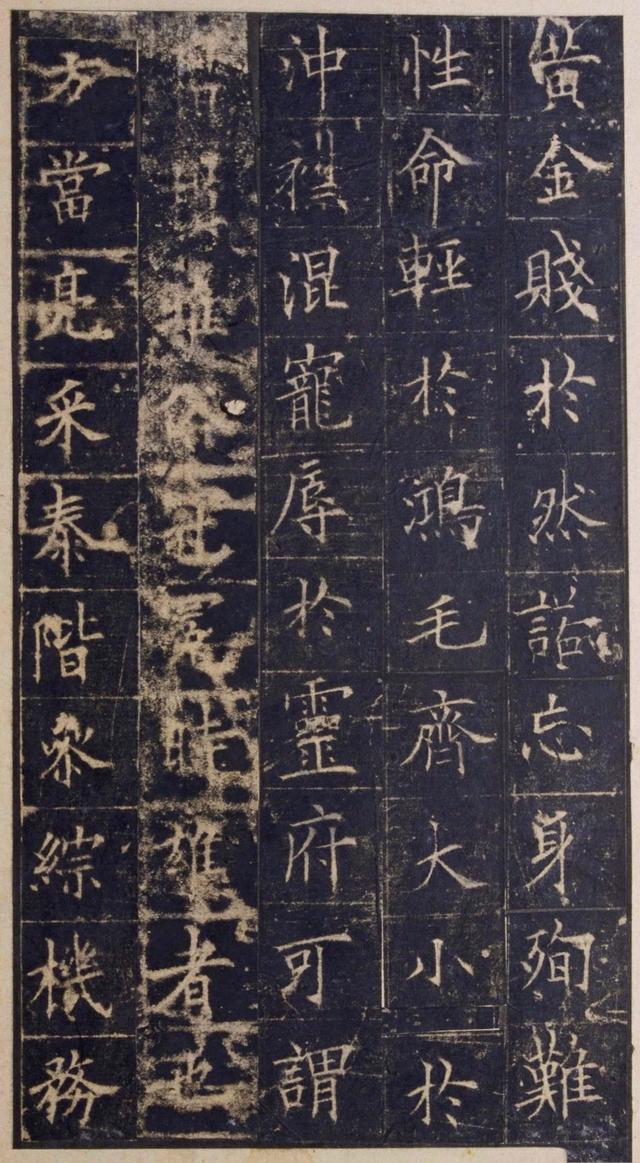 黃金賤於然諾忘身殉難
性命輕於鴻毛齊大小於
沖襟混寵辱於靈府可謂
時雄者也
方當亮采泰階叅綜機務